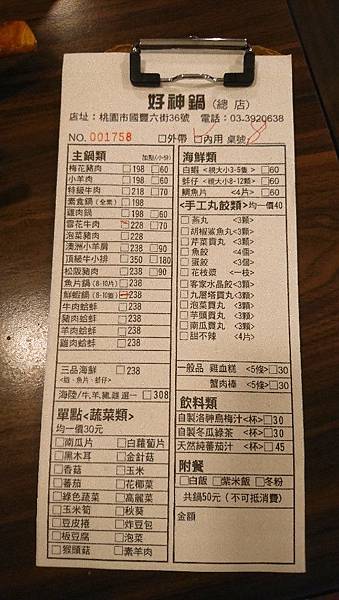 好神鍋(總店)
店址:桃園市國豐六街36號 電話:03-3920638
NO. 001758 □外帶 □內用 桌號
主鍋類 加點(小份)
梅花豬肉 □198 □60
小羊肉 □198 □60
特級牛肉 □218 □70
素食鍋(全素) □198
雞肉鍋 □198
雪花牛肉 □228 □70
泡菜豬肉 □228
澳洲小羊肩 □238 □90
頂級牛小排 □350 □180
松阪豬肉 □238 □90
魚片鍋(8-10片) □238
鮮蝦鍋(8-10隻) □238
牛肉蛤蚌 □238
豬肉蛤蚌 □238
羊肉蛤蚌 □238
雞肉蛤蚌 □238
三品海鮮 □238
<蝦、魚片、蚌仔>
海陸/牛,羊,豬,雞 選一 □308
單點<蔬菜類>
均一價30元
□南瓜片 □白蘿蔔片
□黑木耳 □金針菇
□香菇 □玉米
□番茄 □花椰菜
□綠色蔬菜 □高麗菜
□玉米筍 □秋葵
□豆皮捲 □炸豆包
□板豆腐 □泡菜
□猴頭菇 □素羊肉
海鮮類
白蝦<視大小3-5隻> □60
蚌仔<視大小8-12顆> □60
鯛魚片<4片> □60
<手工丸餃類>均一價40
□燕丸 <3顆>
□胡椒鯊魚丸 <3顆>
□芹菜貢丸 <3顆>
□魚餃 <4個>
□蛋餃 <3個>
□花枝漿 <一枝>
□客家水晶餃<3顆>
□九層塔貢丸<3顆>
□泡菜貢丸 <3顆>
□芋頭貢丸 <3顆>
□南瓜貢丸 <3顆>
□甜不辣 <4片>
一般品 雞血糕 <5條>□30
蟹肉棒 <5條>□30
飲料類
自製洛神烏梅汁<杯>□30
自製冬瓜綠茶 <杯>□30
天然純蕃茄汁 <杯>□45
附餐
□白飯 □紫米飯 □冬粉
共鍋50元(不可抵消費)
金額